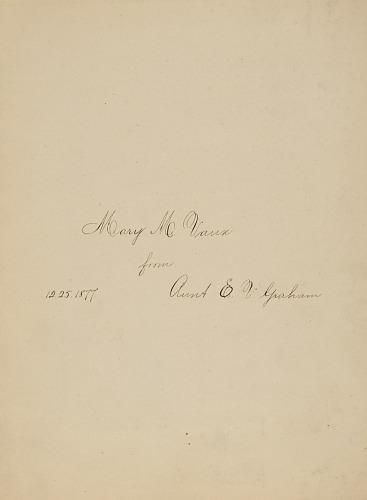 Mary M. Vaux
from
12.25.1877 Aunt E. V. Graham